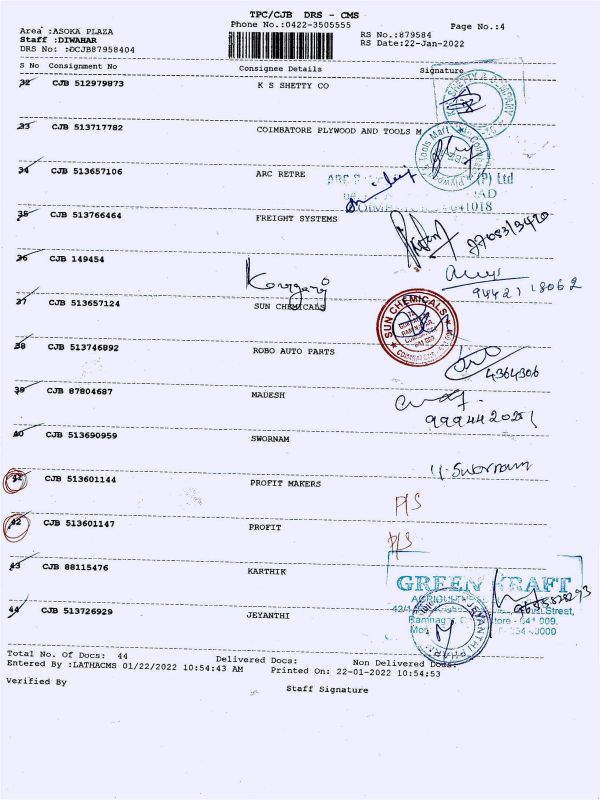 TPC/CJB DRS - CMS
Phone No.:0422-3505555
Page No.:4
Area :ASOKA PLAZA
Staff :DIWAHAR
DRS No: :DCJB87958404
RS No.:879584
RS Date:22-Jan-2022
S No Consignment No Consignee Details Signature
32 CJB 512979873 K S SHETTY CO
33 CJB 513717782 COIMBATORE PLYWOOD AND TOOLS M
34 CJB 513657106 ARC RETRE
(P) Ltd
641018
35 CJB 513766464 FREIGHT SYSTEMS
36 CJB 149454
94421 18062
37 CJB 513657124 SUN CHEMICALS
SUN CHEMICALS
38 CJB 513746892 ROBO AUTO PARTS
4364306
39 CJB 87804687 MADESH
40 CJB 513690959 SWORNAM
Swornam
41 CJB 513601144 PROFIT MAKERS
P/S
42 CJB 513601147 PROFIT
P/S
43 CJB 88115476 KARTHIK
GREEN KRAFT
44 CJB 513726929 JEYANTHI
JEYANTHI
Total No. of Docs: 44 Delivered Docs: Non Delivered Docs:
Entered By :LATHACMS 01/22/2022 10:54:43 AM Printed On: 22-01-2022 10:54:53
Verified By
Staff Signature